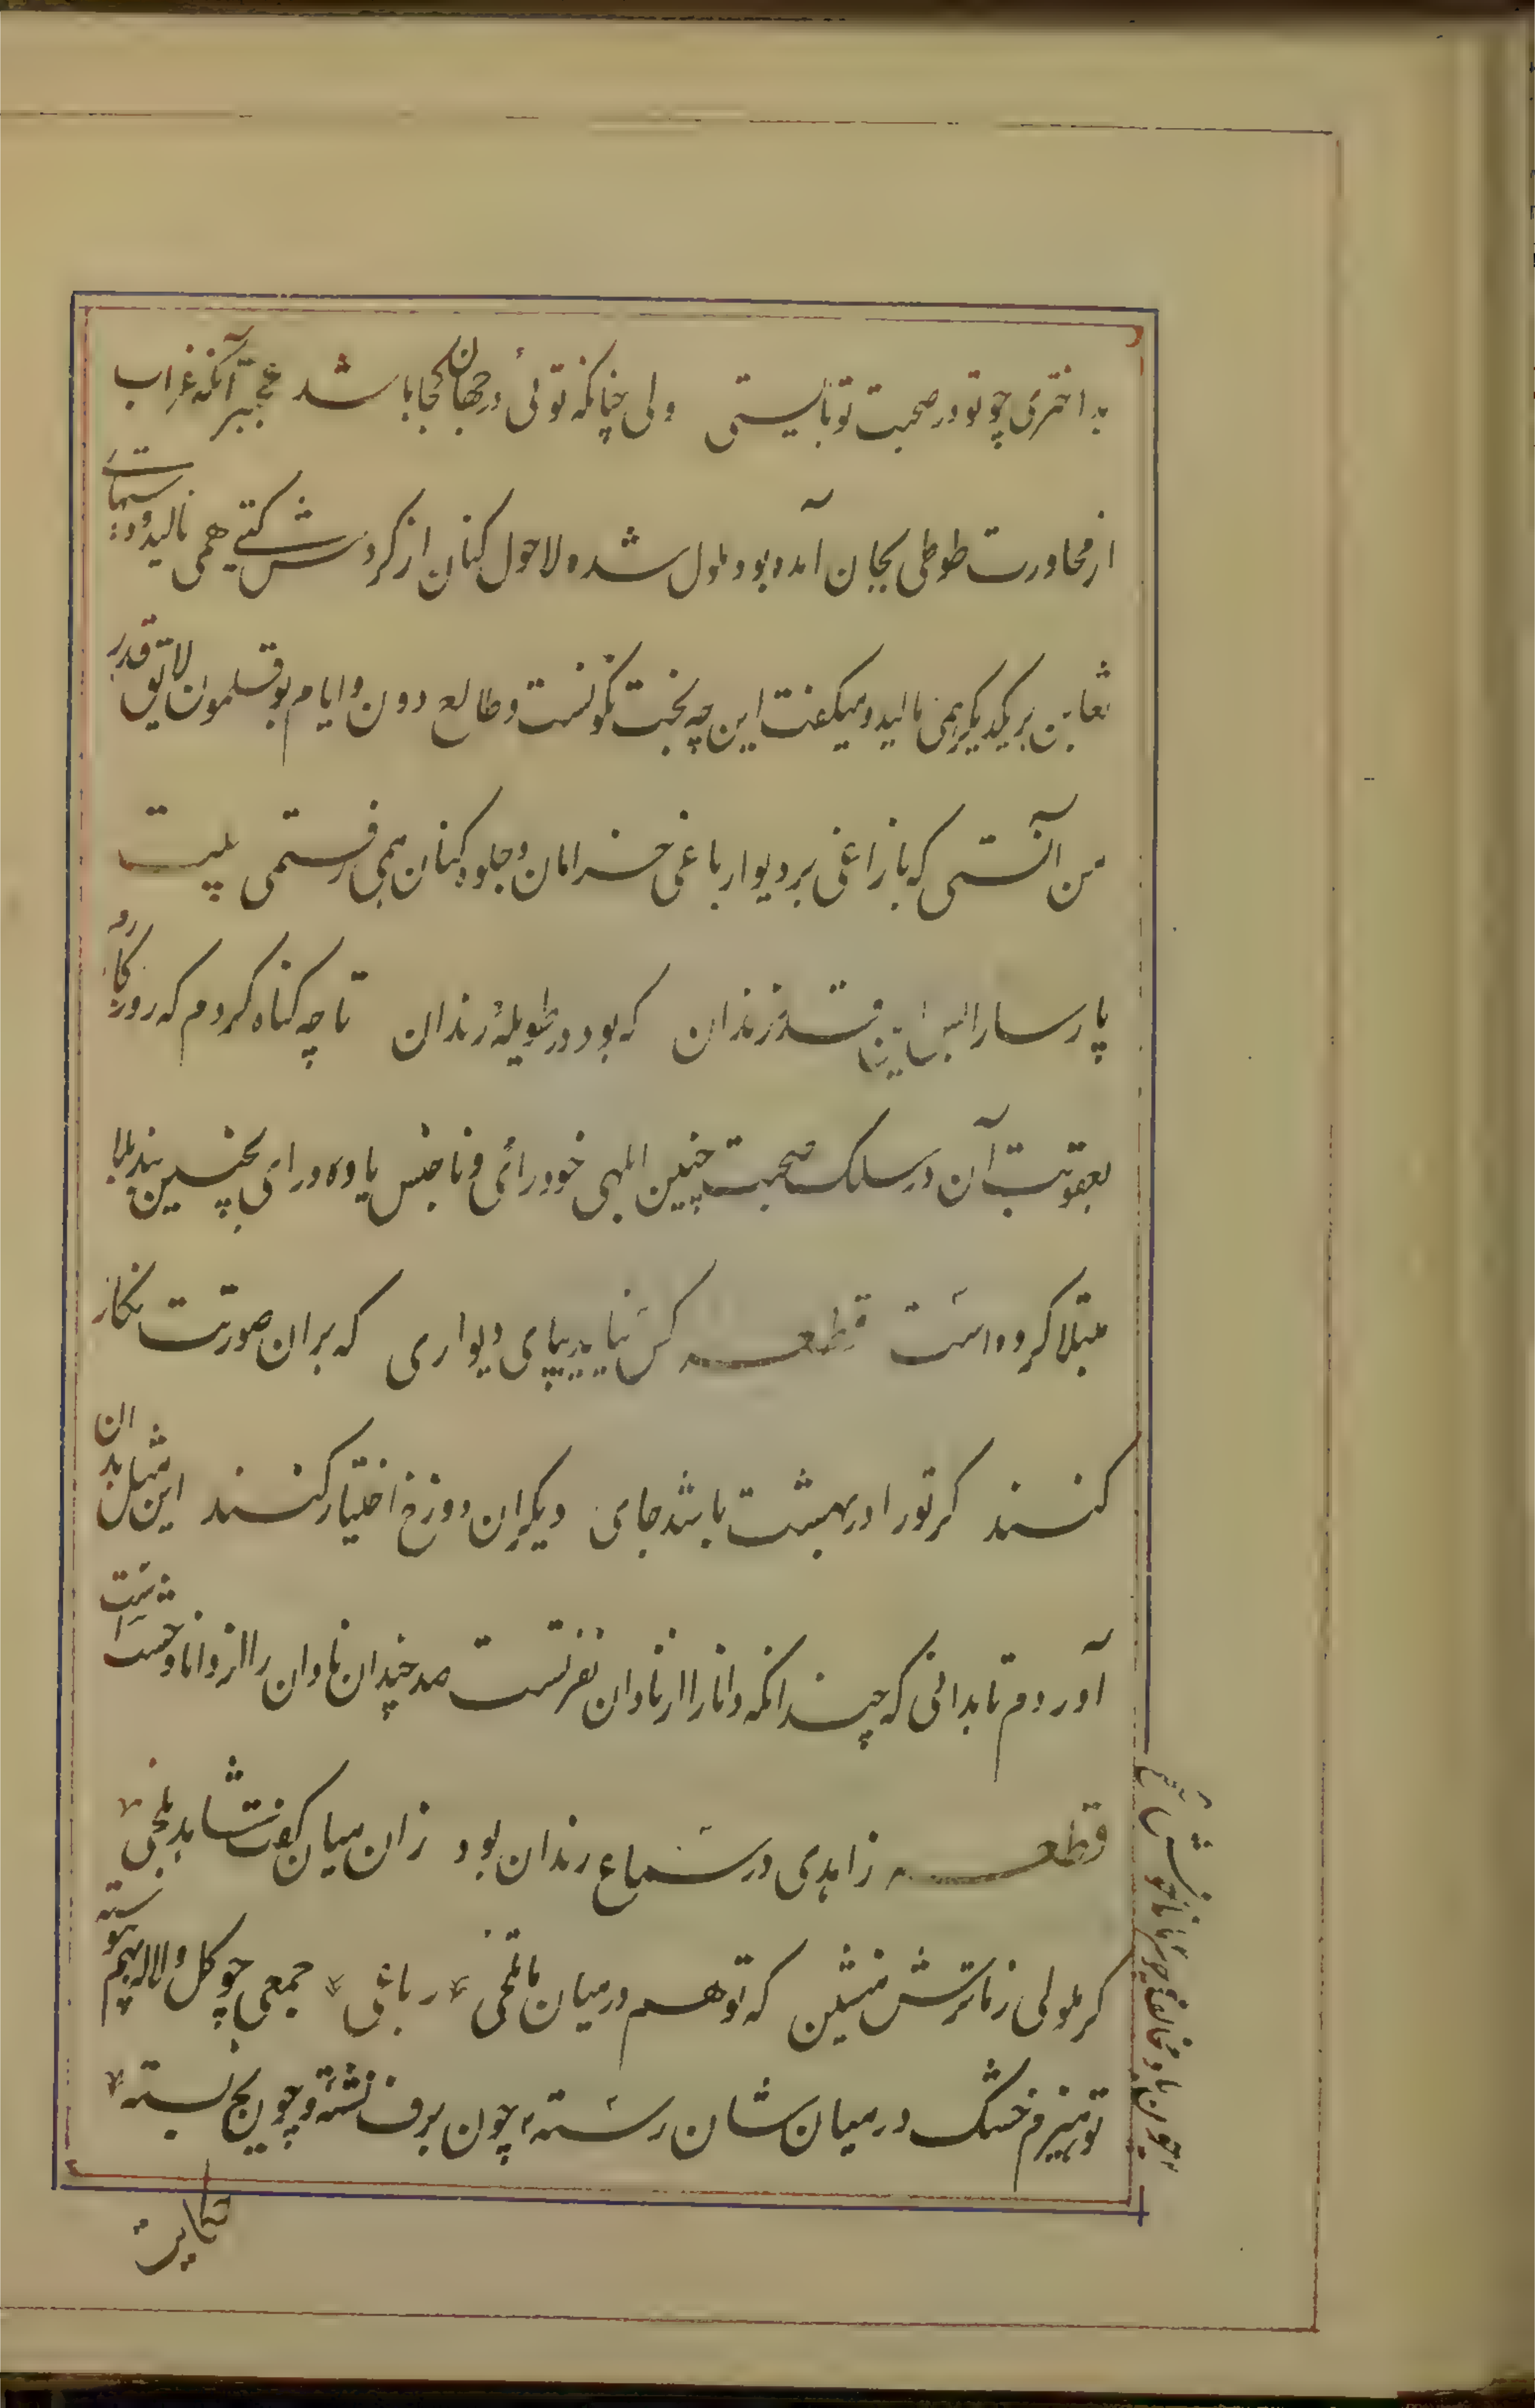 بد اختری چو تو در صحبت تو بایستی ولی چنانکه توئی در جهان کجا باشد عجبتر آنکه غراب
از محاورت طوطی بجان آمده بود و ملول شده لاحول کنان از کردش کیتی همی نالید و دستهای
تغابن بر یکدیکر همی مالید و میکفت این چه بخت نکونست و طالع دون و ایام بوقلمون لایق قدر
من آنستی که با زاغی بر دیوار باغی خرامان و جلوه کنان همی رفتمی بیت
پارسا را بس این قدر زندان که بود در طویلهٔ رندان تا چه کناه کردم که روزکارم
بعقوبت آن در سلک صحبت چنین ابلهی خودرائی و ناجنس یاوه درای بچنین بند بلا
مبتلا کرده است قطعه کس نیاید بپای دیواری که بر ان صورتت نکار
کنند کر تو را در بهشت باشد جای دیکران دوزخ اختیار کنند این مثل بدان
آوردم تا بدانی که چندانکه دانا را از نادان نفرتست صد چندان نادان را از دانا وحشت است
قطعه زاهدی در سماع رندان بود زان میان کفت شاهد بلخی
کر ملولی ز ما ترش منشین که تو هم در میان ما تلخی رباعی جمعی چو کل و لاله بهم پیوسته
تو هیزم خشک در میان شان رسته چون برف نشسته و چون یخ بسته
چون باد مخالف و چو سرما ناخوش
حکایت